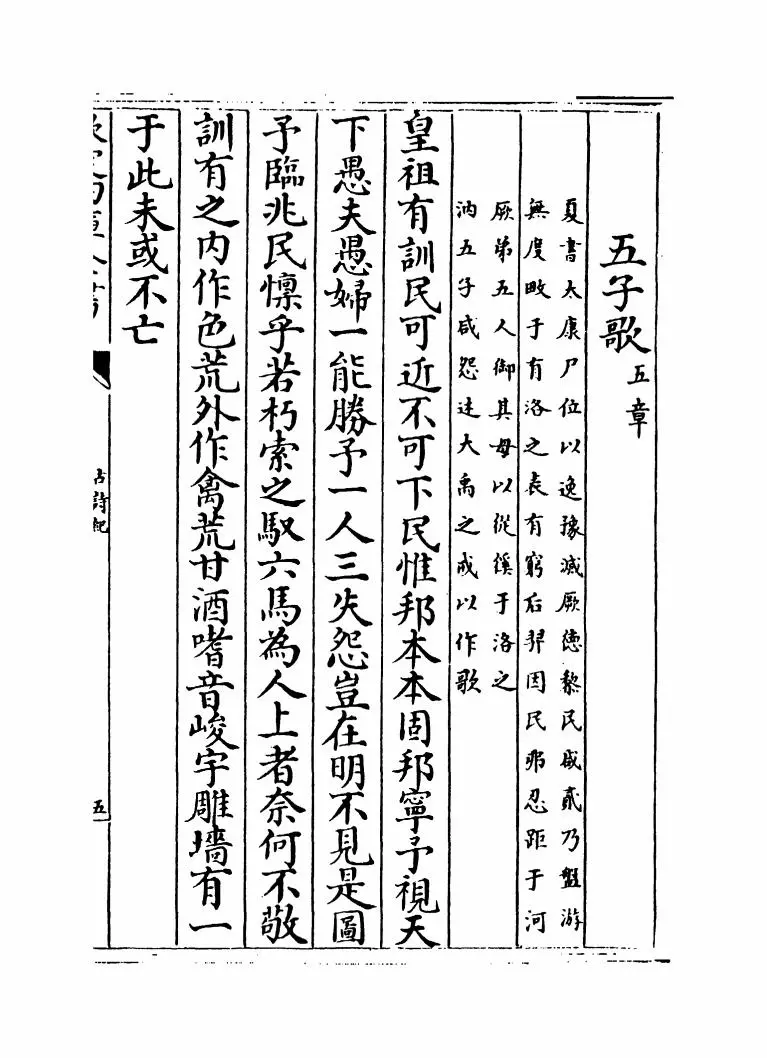 五子歌五章
夏書太康尸位以逸豫滅厥徳黎民咸貳乃盤游
無度畋于有洛之表有窮后羿因民弗忍距于河
厥弟五人御其母以從徯于洛之
汭五子咸怨述大禹之戒以作歌
皇祖有訓民可近不可下民惟邦本本固邦寧予視天
下愚夫愚婦一能勝予一人三失怨豈在明不見是圖
予臨兆民懍乎若朽索之馭六馬為人上者奈何不敬
訓有之内作色荒外作禽荒甘酒嗜音峻宇雕墻有一
于此未或不亡
古詩紀
五